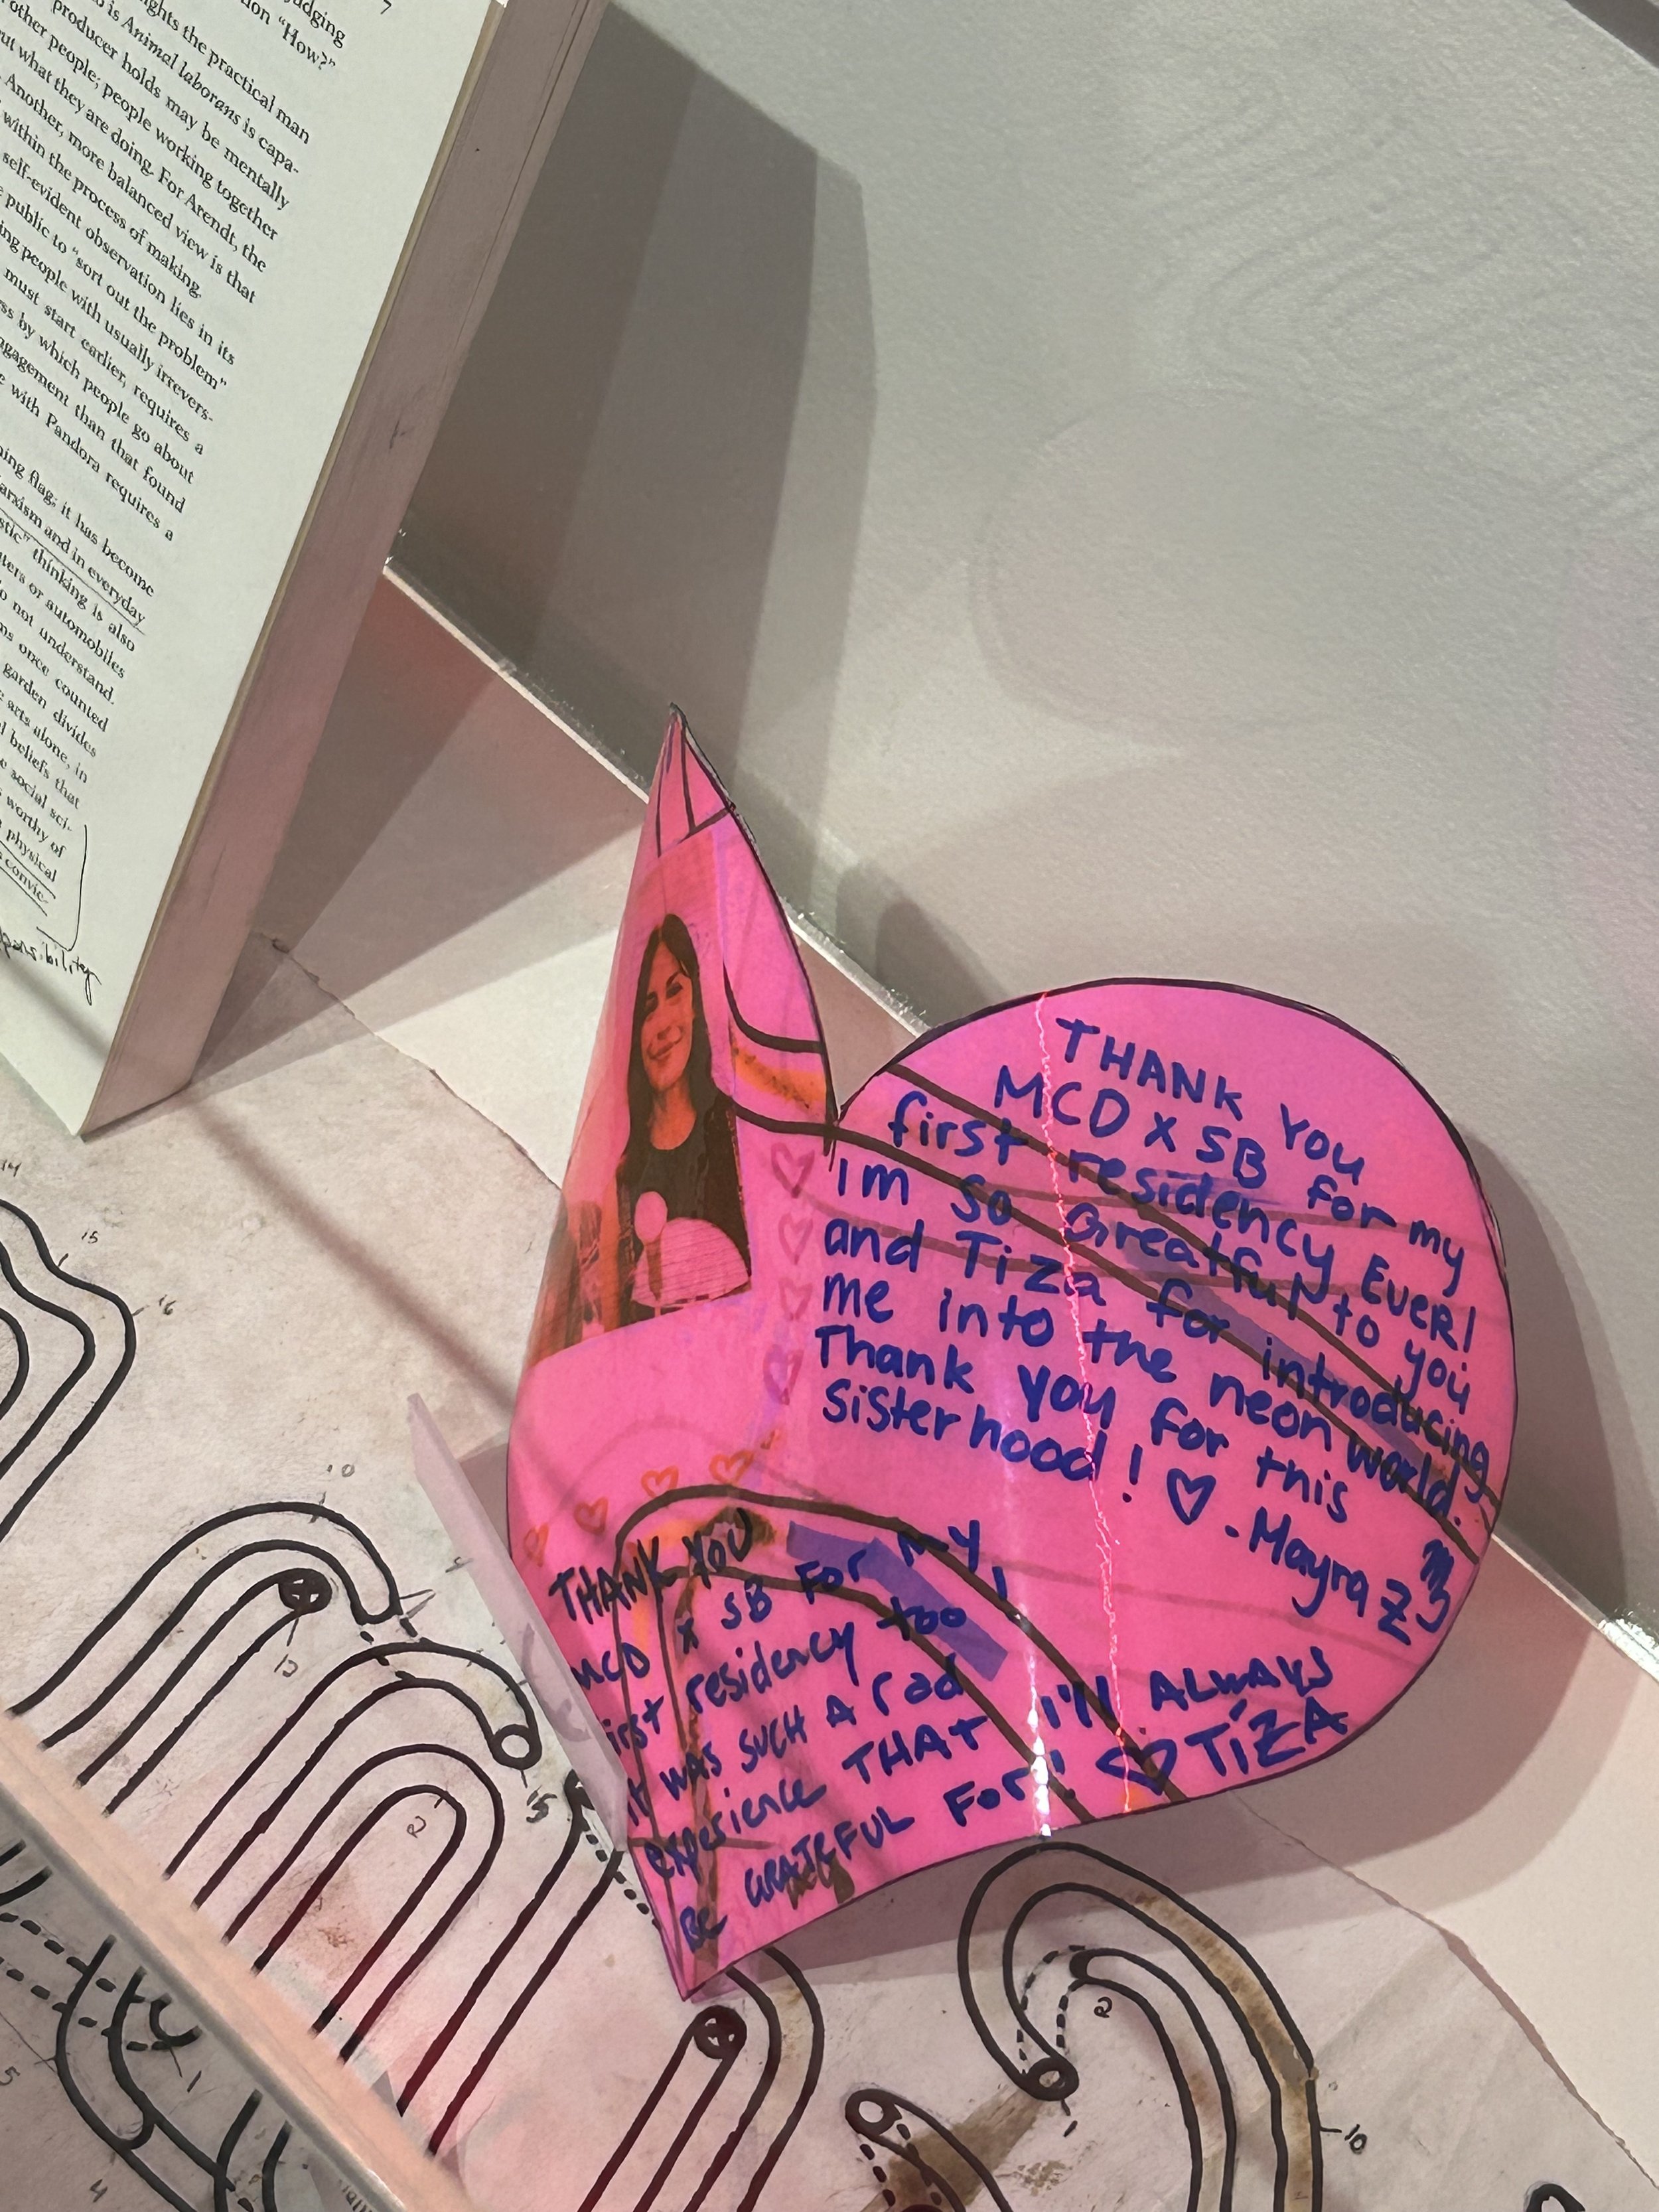 7
judging
tion "How?"
ghts the practical man
is Animal laborans is capa-
producer holds may be mentally
other people; people working together
what they are doing. For Arendt, the
Another, more balanced view is that
within the process of making.
self-evident observation lies in its
public to "sort out the problem"
people with usually irrevers-
must start earlier, requires a
by which people go about
ngagement than that found
with Pandora requires a
flag; it has become
arxism and in everyday
thinking is also
or automobiles
not understand.
once counted
garden divides
arts alone, in
beliefs that
social sci-
worthy of
physical
convic-
THANK YOU
MCD X SB for my
first residency EVER!
Im so Greatful to you
and Tiza for introducing
me into the neon world.
Thank you for this
Sisterhood! ♡ - Mayra Z
THANK YOU
MCD x SB FOR MY
irst residency too
it WAS SUCH A rad
experience THAT I'll ALWAYS
BE GRATEFUL For! ♡ TíZA
14
15
16
10
9
13
2
15
2
10
1
5
4